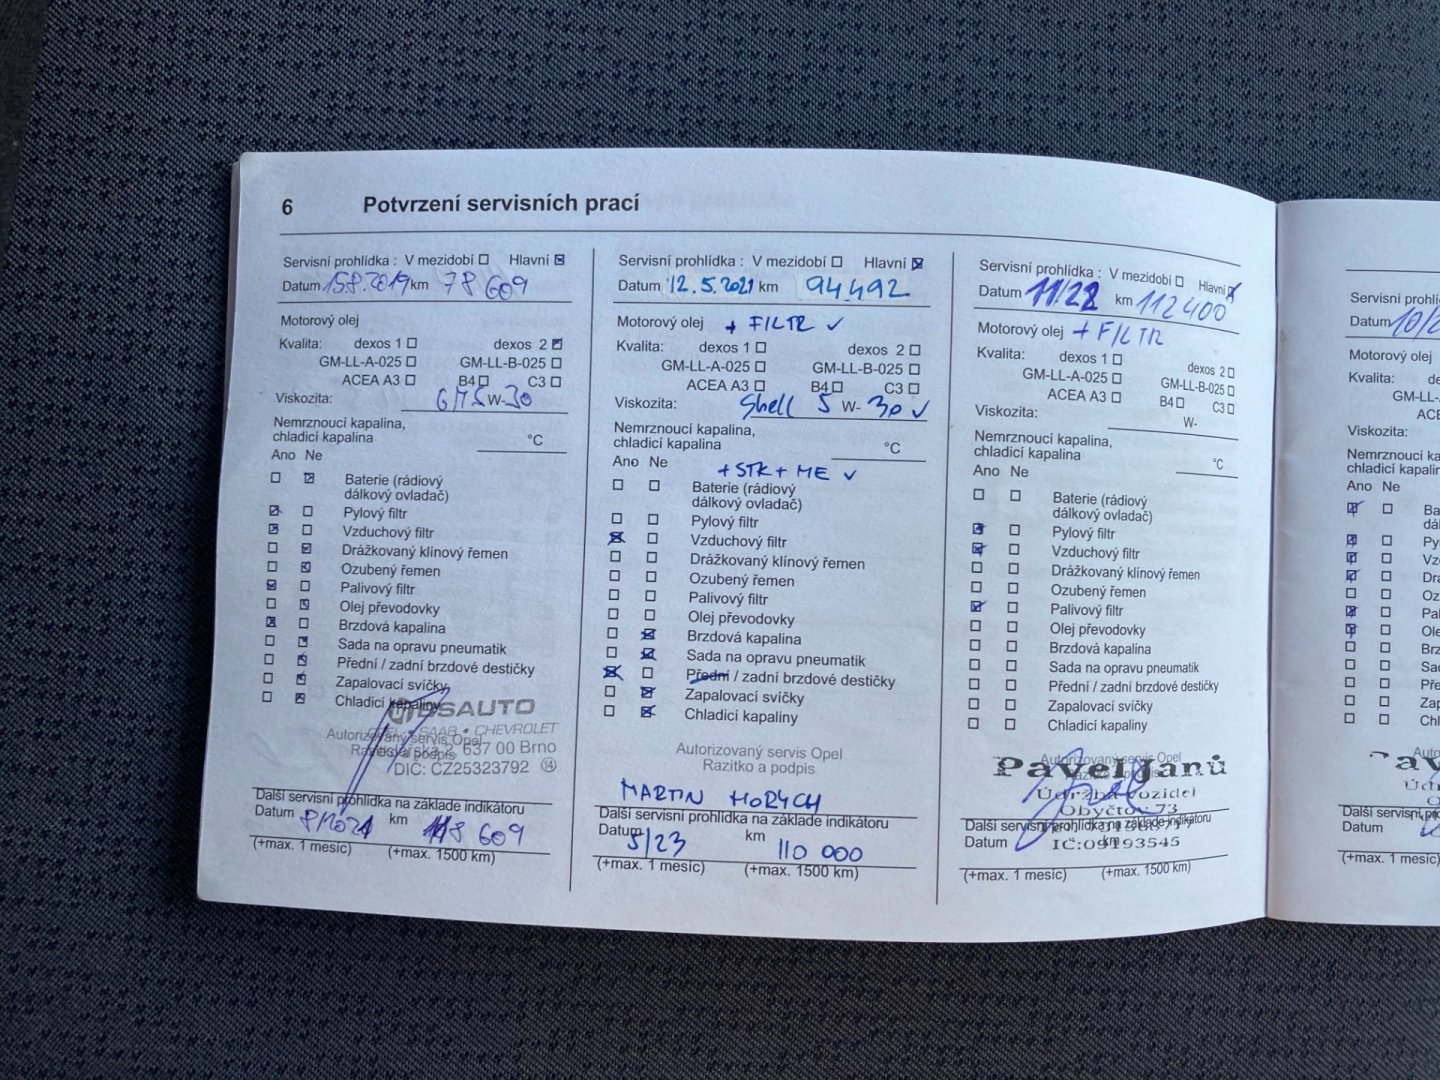 6 Potvrzení servisních prací
Servisní prohlídka : V mezidobí Hlavní
Datum 15.8.2019 km 78 609
Motorový olej
Kvalita: dexos 1 dexos 2
GM-LL-A-025 GM-LL-B-025
ACEA A3 B4 C3
Viskozita: W-30
Nemrznoucí kapalina,
chladicí kapalina °C
Ano Ne
Baterie (rádiový
dálkový ovladač)
Pylový filtr
Vzduchový filtr
Drážkovaný klínový řemen
Ozubený řemen
Palivový filtr
Olej převodovky
Brzdová kapalina
Sada na opravu pneumatik
Přední / zadní brzdové destičky
Zapalovací svíčky
Chladicí kapaliny
SAAB • CHEVROLET
Autorizovaný servis Opel
Razítko a podpis
637 00 Brno
DIČ: CZ25323792 14
Další servisní prohlídka na základě indikátoru
Datum 8/2021 km 118 609
(+max. 1 měsíc) (+max. 1500 km)
Servisní prohlídka : V mezidobí Hlavní
Datum 12.5.2021 km 94492
Motorový olej + FILTR ✓
Kvalita: dexos 1 dexos 2
GM-LL-A-025 GM-LL-B-025
ACEA A3 B4 C3
Viskozita: Shell 5 W- 30 ✓
Nemrznoucí kapalina,
chladicí kapalina °C
Ano Ne + STK + ME ✓
Baterie (rádiový
dálkový ovladač)
Pylový filtr
Vzduchový filtr
Drážkovaný klínový řemen
Ozubený řemen
Palivový filtr
Olej převodovky
Brzdová kapalina
Sada na opravu pneumatik
Přední / zadní brzdové destičky
Zapalovací svíčky
Chladicí kapaliny
Autorizovaný servis Opel
Razítko a podpis
MARTIN HORYCH
Další servisní prohlídka na základě indikátoru
Datum 5/23 km 110 000
(+max. 1 měsíc) (+max. 1500 km)
Servisní prohlídka : V mezidobí Hlavní
Datum 11/22 km 112400
Motorový olej + FILTR
Kvalita: dexos 1 dexos 2
GM-LL-A-025 GM-LL-B-025
ACEA A3 B4 C3
Viskozita: W-
Nemrznoucí kapalina,
chladicí kapalina °C
Ano Ne
Baterie (rádiový
dálkový ovladač)
Pylový filtr
Vzduchový filtr
Drážkovaný klínový řemen
Ozubený řemen
Palivový filtr
Olej převodovky
Brzdová kapalina
Sada na opravu pneumatik
Přední / zadní brzdové destičky
Zapalovací svíčky
Chladicí kapaliny
Autorizovaný servis Opel
Pavel Janů
Údržba vozidel
Obyčtov 73
Další servisní prohlídka na základě indikátoru
Datum km
IČ:09193545
(+max. 1 měsíc) (+max. 1500 km)
Servisní
Datum 10/2
Motorový olej
Kvalita:
GM-LL-
Viskozita:
Nemrznoucí
chladicí kapalin
Ano Ne
Další servisní
Datum
(+max. 1 měsíc)